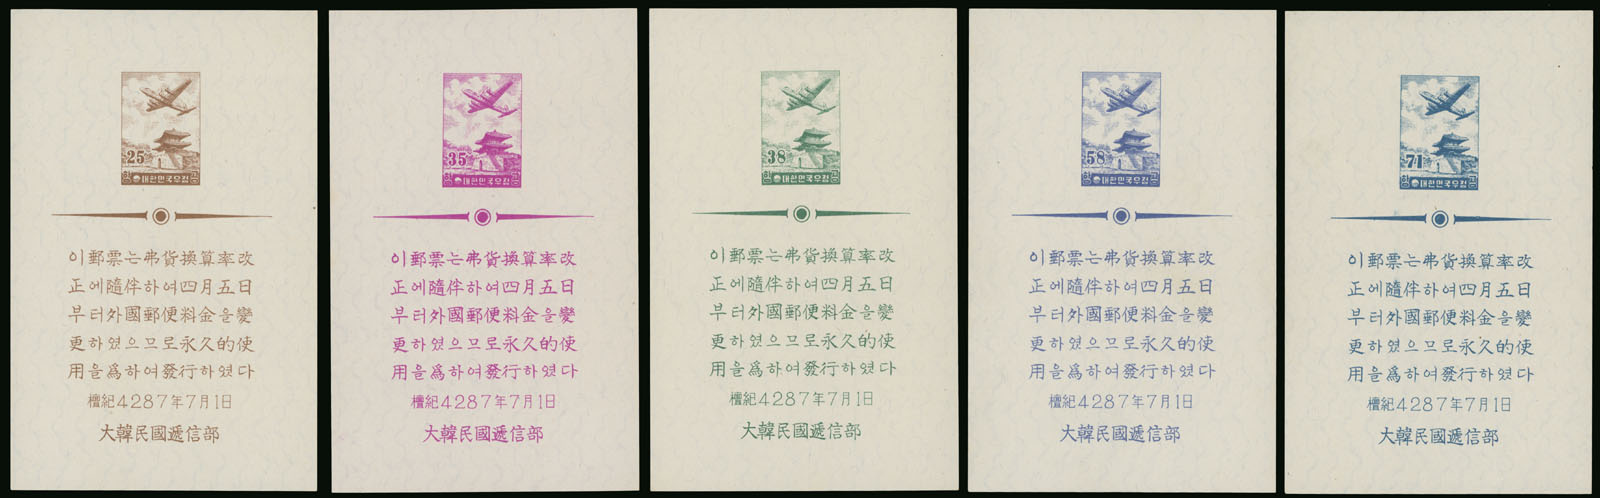 25
항공
대한민국우정
이郵票는弗貨換算率改
正에隨伴하여四月五日
부터外國郵便料金을變
更하였으므로永久的使
用을爲하여發行하였다
檀紀4287年7月1日
大韓民國遞信部
35
항공
대한민국우정
이郵票는弗貨換算率改
正에隨伴하여四月五日
부터外國郵便料金을變
更하였으므로永久的使
用을爲하여發行하였다
檀紀4287年7月1日
大韓民國遞信部
38
항공
대한민국우정
이郵票는弗貨換算率改
正에隨伴하여四月五日
부터外國郵便料金을變
更하였으므로永久的使
用을爲하여發行하였다
檀紀4287年7月1日
大韓民國遞信部
58
항공
대한민국우정
이郵票는弗貨換算率改
正에隨伴하여四月五日
부터外國郵便料金을變
更하였으므로永久的使
用을爲하여發行하였다
檀紀4287年7月1日
大韓民國遞信部
71
항공
대한민국우정
이郵票는弗貨換算率改
正에隨伴하여四月五日
부터外國郵便料金을變
更하였으므로永久的使
用을爲하여發行하였다
檀紀4287年7月1日
大韓民國遞信部